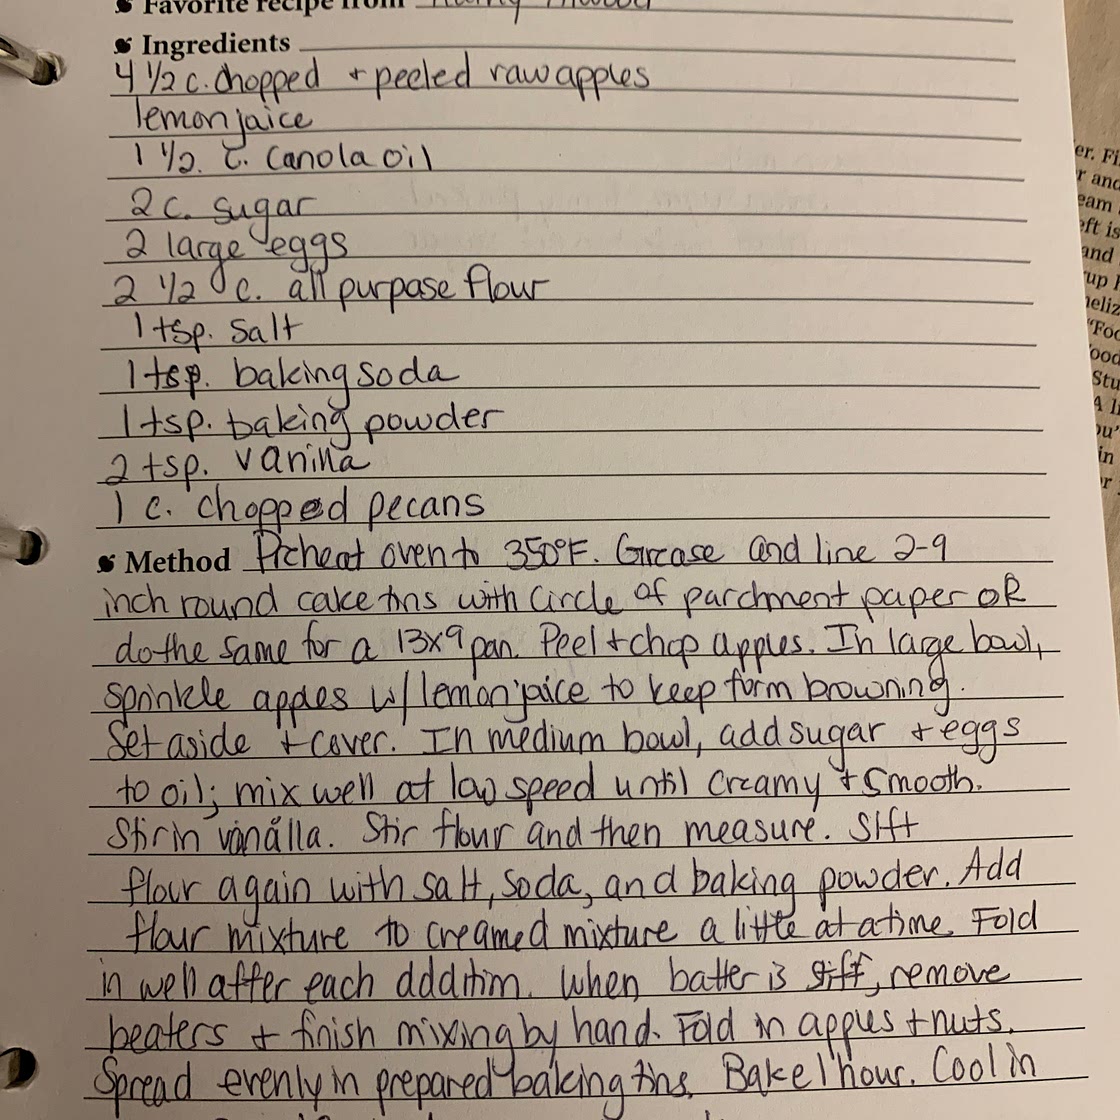 Favorite recipe from
Ingredients
4 1/2 c. chopped + peeled raw apples
lemon jaice
1 1/2. c. canola oil
2 c. sugar
2 large eggs
2 1/2 c. all purpase flour
1 tsp. salt
1 tsp. baking soda
1 tsp. baking powder
2 tsp. vanilla
1 c. chopped pecans
Method Preheat oven to 350°F. Grease and line 2-9
inch round cake tins with circle of parchment paper OR
do the same for a 13x9 pan. Peel + chop apples. In large bowl,
sprinkle apples w/ lemon juice to keep form browning.
Set aside + cover. In medium bowl, add sugar + eggs
to oil; mix well at low speed until creamy + smooth.
Stir in vanilla. Stir flour and then measure. Sift
flour again with salt, soda, and baking powder. Add
flour mixture to creamed mixture a little at a time. Fold
in well after each addition. When batter is stiff, remove
beaters + finish mixing by hand. Fold in apples + nuts.
Spread evenly in prepared baking tins. Bake 1 hour. Cool in
er. Fi
r and
eam
eft is
and
up
heliz
"Foo
ood
Stu
A li
ou'
in
r